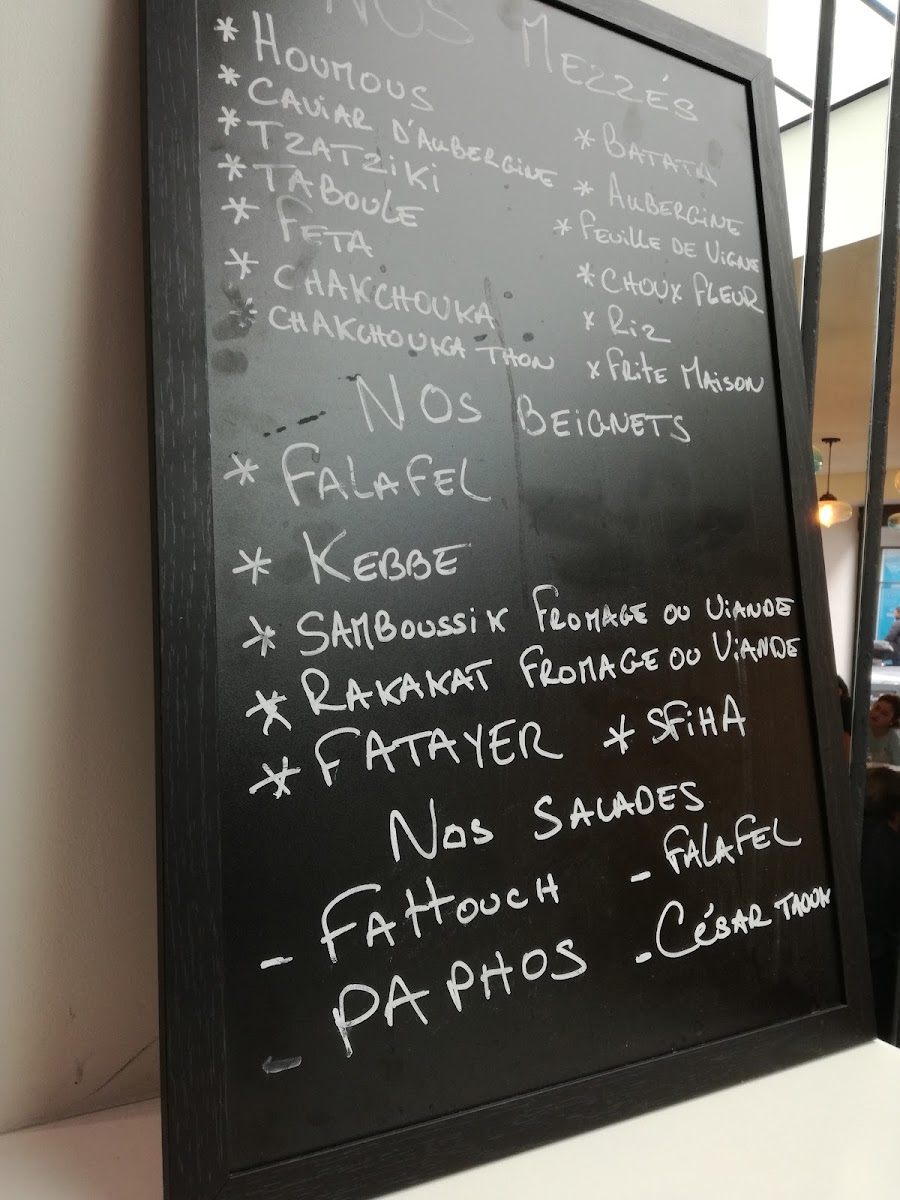 NOS MEZZÉS
* HOUMOUS
* CAVIAR D'AUBERGINE
* TZATZIKI
* TABOULE
* FETA
* CHAKCHOUKA
* CHAKCHOUKA THON
* BATATA
* AUBERGINE
* FEUILLE DE VIGNE
* CHOUX FLEUR
* RIZ
* FRITE MAISON
NOS BEIGNETS
* FALAFEL
* KEBBE
* SAMBOUSSIK FROMAGE OU VIANDE
* RAKAKAT FROMAGE OU VIANDE
* FATAYER * SFIHA
NOS SALADES
- FATTOUCH - FALAFEL
- PAPHOS - CÉSAR TAOUK